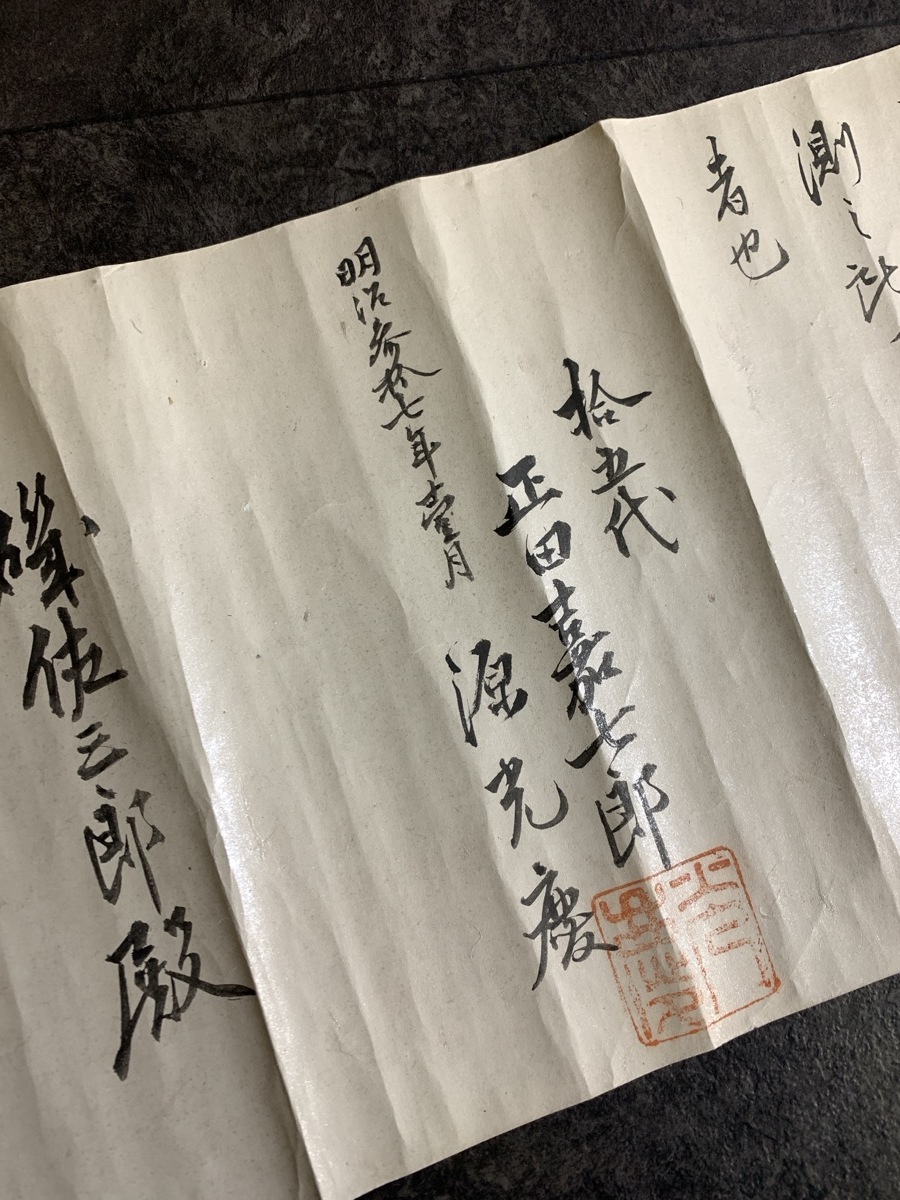 測之
者也
拾五代
正田嘉七郎
源光慶
明治参拾七年壹月
磯佐三郎殿